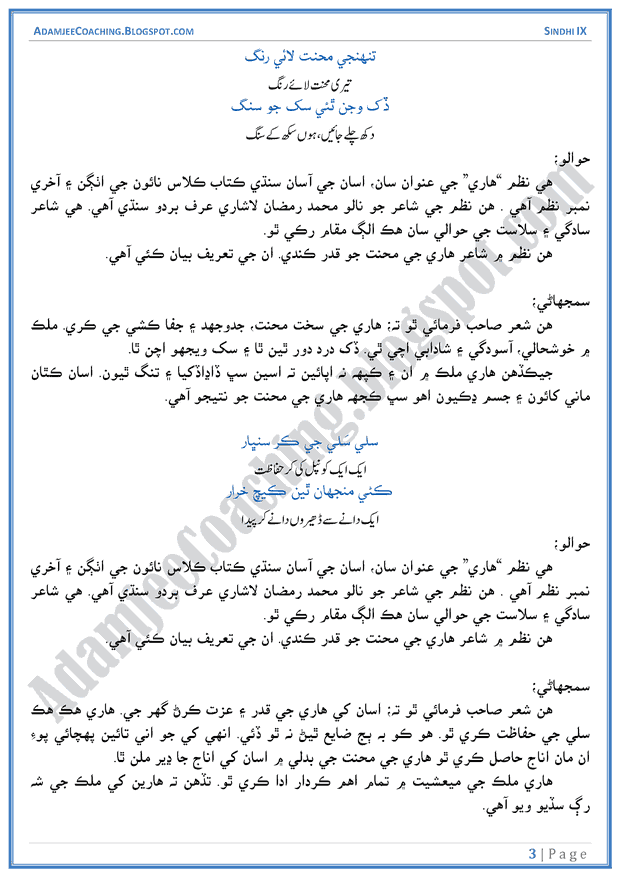 ADAMJEECOACHING.BLOGSPOT.COM
SINDHI IX
تنهنجي محنت لائي رنگ
تیری محنت لائے رنگ
ڏک وڃن ٿئي سک جو سنگ
دکھ چلے جائیں، ہوں سکھ کے سنگ
حوالو:
هي نظم “هاري” جي عنوان سان، اسان جي آسان سنڌي ڪتاب ڪلاس نائون جي اٺڳن ۽ آخري
نمبر نظم آهي . هن نظم جي شاعر جو نالو محمد رمضان لاشاري عرف بردو سنڌي آهي. هي شاعر
سادگي ۽ سلاست جي حوالي سان هڪ الڳ مقام رکي ٿو.
هن نظم ۾ شاعر هاري جي محنت جو قدر ڪندي. ان جي تعريف بيان ڪئي آهي.
سمجهاڻي:
هن شعر صاحب فرمائي ٿو ته؛ هاري جي سخت محنت، جدوجهد ۽ جفا ڪشي جي ڪري. ملڪ
۾ خوشحالي، آسودگي ۽ شادابي اچي ٿي. ڏک درد دور ٿين ٿا ۽ سک ويجهو اچن ٿا.
جيڪڏهن هاري ملڪ ۾ ان ۽ ڪپهه نه اپائين ته اسين سڀ ڏاڍا ڏکيا ۽ تنگ ٿيون. اسان کٿان
ماني کائون ۽ جسم ڍڪيون اهو سڀ ڪجهه هاري جي محنت جو نتيجو آهي.
سلي سلي جي ڪر سنڀار
ایک ایک کونپل کی کر حفاظت
ڪڻي منجهان ٿين ڪيچ خرار
ایک دانے سے ڈھیروں دانے کر پیدا
حوالو:
هي نظم “هاري” جي عنوان سان، اسان جي آسان سنڌي ڪتاب ڪلاس نائون جي اٺڳن ۽ آخري
نمبر نظم آهي . هن نظم جي شاعر جو نالو محمد رمضان لاشاري عرف بردو سنڌي آهي. هي شاعر
سادگي ۽ سلاست جي حوالي سان هڪ الڳ مقام رکي ٿو.
هن نظم ۾ شاعر هاري جي محنت جو قدر ڪندي. ان جي تعريف بيان ڪئي آهي.
سمجهاڻي:
هن شعر صاحب فرمائي ٿو ته؛ اسان کي هاري جي قدر ۽ عزت ڪرڻ گهر جي. هاري هڪ هڪ
سلي جي حفاظت ڪري ٿو. هو ڪو به ٻج ضايع ٿيڻ نه ٿو ڏئي. انهي کي جو اني تائين پهچائي پوءِ
ان مان اناج حاصل ڪري ٿو هاري جي محنت جي بدلي ۾ اسان کي اناج جا ڍير ملن ٿا.
هاري ملڪ جي ميعشيت ۾ تمام اهم ڪردار ادا ڪري ٿو. تڏهن ته هارين کي ملڪ جي شہ
رڳ سڏيو ويو آهي.
3 | Page
AdamjeeCoaching.blogspot.com